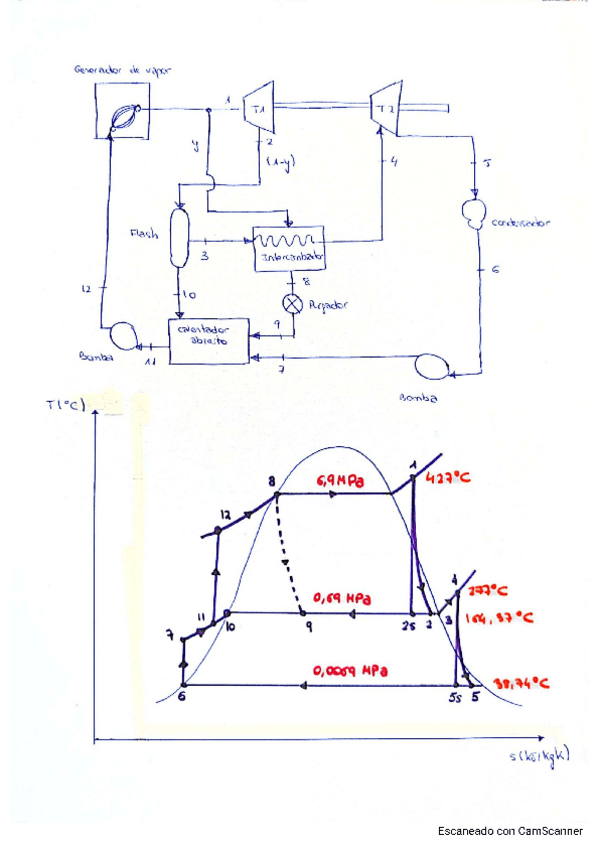 Generador de vapor
1
T1
T2
y
2
(1-y)
4
5
Flash
3
Intercambiador
condensador
8
6
12
10
Purgador
9
calentador
abierto
Bomba
11
7
Bomba
T(°C)
8
6,9 MPa
1
427°C
12
4
277°C
0,69 MPa
7
11
10
9
2s
2
3
164,37°C
0,0069 MPa
38,74°C
6
5s
5
s(kJ/kgK)
Escaneado con CamScanner